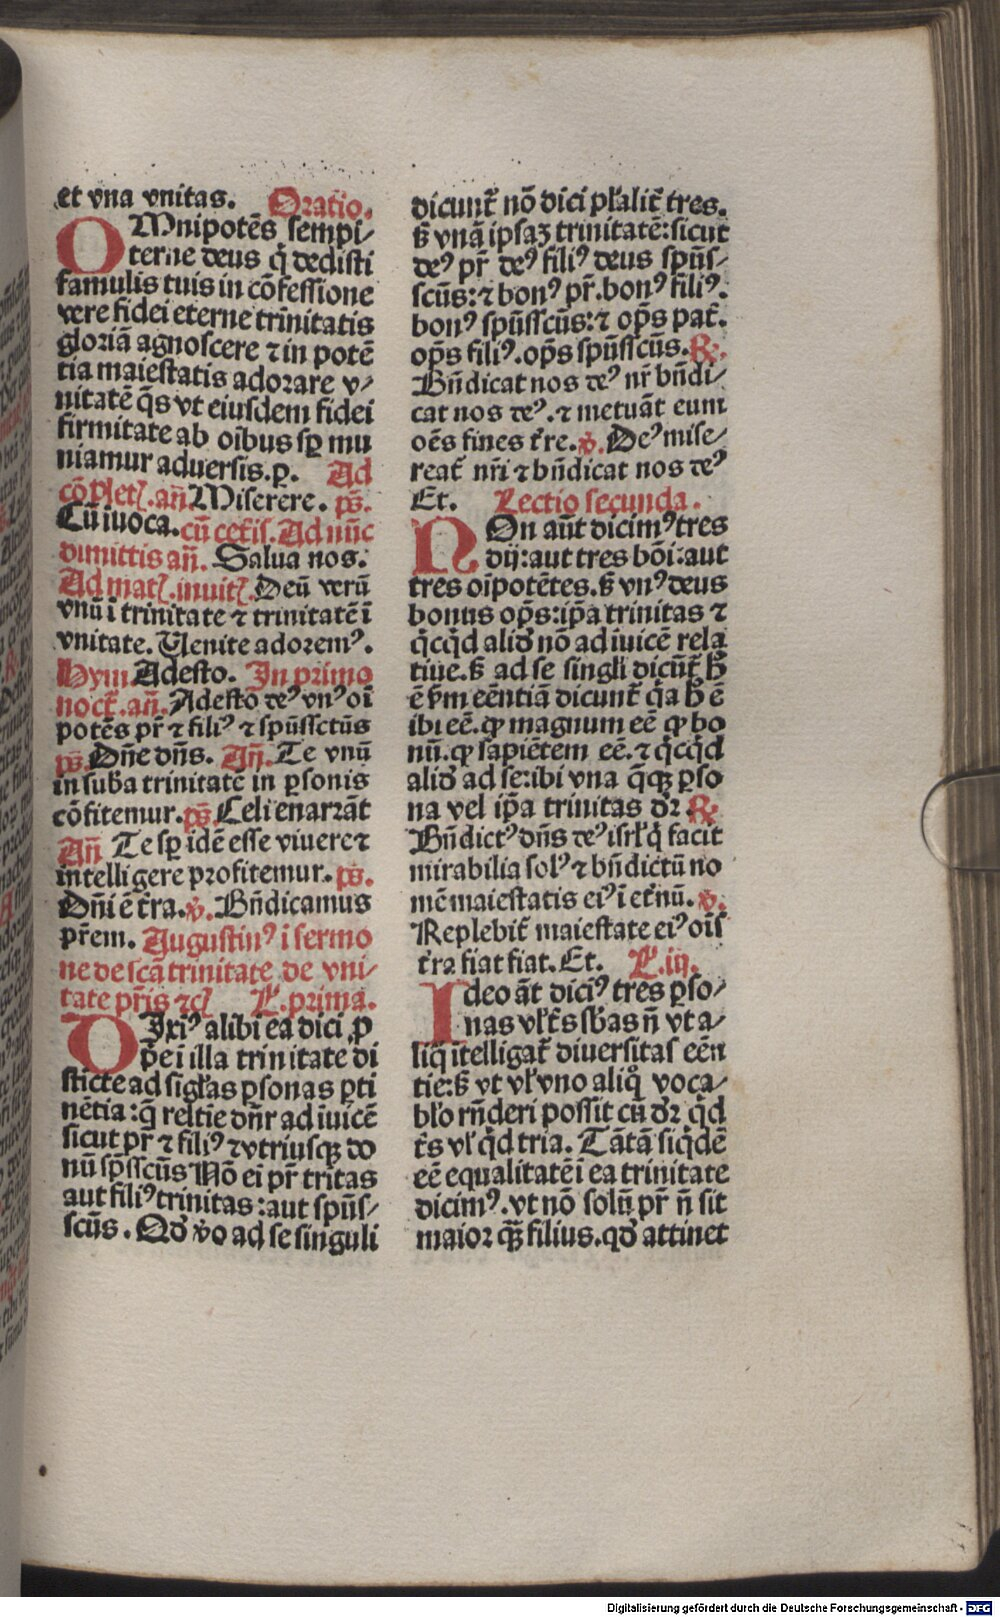 et vna vnitas. Oratio.
OMnipotēs sempi⸗
terne deus q̇ dedisti
famulis tuis in cōfessione
vere fidei eterne trinitatis
gloriā agnoscere ⁊ in potē
tia maiestatis adorare v⸗
nitatē q̄s vt eiusdem fidei
firmitate ab oībus sꝑ mu
niamur aduersis.p. Ad
cōpletꝭ.añ. Miserere. pꝰ.
Cū īuoca. cū ceteris. Ad nūc
dimittis añ. Salua nos.
Ad matꝭ. inuitꝭ. Deū verū
vnū ī trinitate ⁊ trinitatē ī
vnitate. Venite adoremꝰ.
Hym. Adesto. In primo
noct̄. añ. Adesto deꝰ vnꝰ oī
potēs pr̄ ⁊ filiꝰ ⁊ spūssctūs
ps̄. Dñe dñs. Añ. Te vnū
in suba trinitatē in ꝑsonis
cōfitemur. ps̄. Celi enarrāt
Añ Te sꝑ idē esse viuere ⁊
intelligere profitemur. ps̄.
Dñi ē t̄ra. ℣. Bn̄dicamus
pr̄em. Augustinꝰ ī sermo
ne de scā trinitate de vni⸗
tate pr̄is ⁊cꝭ L. prima.
DIxiꝰ alibi ea dici ꝓ
p̄e ī illa trinitate di
sticte ad sigl̄as ꝑsonas ꝑti
nētia: q̄ rel̄tie dn̄r ad īuicē
sicut pr̄ ⁊ filiꝰ ⁊ vtriusqꝫ do
nū spūsscūs Nō eī pr̄ tritas
aut filiꝰ trinitas: aut spūs⸗
scūs. Qd̓ v̓o ad se singuli
dicunt̄ nō dici pl̄alit̄ tres.
s̄ vnā ipsaꝫ trinitatē: sicut
deꝰ pr̄ deꝰ filiꝰ deus spūs⸗
scūs: ⁊ bonꝰ pr̄. bonꝰ filiꝰ.
bonꝰ spūsscūs: ⁊ op̄s pat̄.
op̄s filiꝰ. op̄s spūsscūs. ℟.
Bn̄dicat nos deꝰ nr̄ bn̄di⸗
cat nos deꝰ. ⁊ metuāt eum
oēs fines t̄re. ℣. Deꝰ mise⸗
reat̄ nr̄i ⁊ bn̄dicat nos deꝰ
Et. Lectio secunda.
NOn aūt dicimꝰ tres
dij: aut tres bōi: aut
tres oīpotētes. s̄ vnꝰ deus
bonus op̄s: ip̄a trinitas ⁊
q̇cq̇d alid̓ nō ad īuicē rela
tiue. s̄ ad se singl̄i dicūt̄ h̓
ē ẜm eēntiā dicunt̄ q̇a h̓ ē
ibi eē. qꝙ magnum eē qꝙ bo
nū. qꝙ sapiētem eē. ⁊ q̇cq̇d
alid̓ ad se: ibi vna q̄qꝫ ꝑso
na vel ip̄a trinitas dr̄ ℟.
Bn̄dictꝰ dñs deꝰ isrl̄ q̇ facit
mirabilia solꝰ ⁊ bn̄dictū no
mē maiestatis eiꝰ ī et̄nū. ℣.
Replebit̄ maiestate eiꝰ oīs
t̄ra fiat fiat. Et. L. iij.
Ideo āt diciꝰ tres ꝑso⸗
nas vl̄ t̄s sb̄as n̄ vt a⸗
liq̄ ītelligat̄ diuersitas eēn
tie: s̄ vt vl̄ vno aliq̊ voca⸗
bl̓o rn̄deri possit cū dr̄ q̇d
t̄s vl̄ q̇d tria. Tātā siq̇dē
eē equalitatē ī ea trinitate
dicimꝰ. vt nō solū pr̄ n̄ sit
maior qꝫ̄ filius. qd̓ attinet
Digitalisierung gefördert durch die Deutsche Forschungsgemeinschaft - DFG